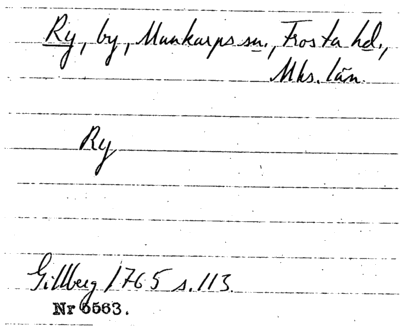 Ry, by, Munkarps sn., Frosta hd.,
Mhs. län.
Ry
Gillberg 1765 s. 113
Nr 6563.